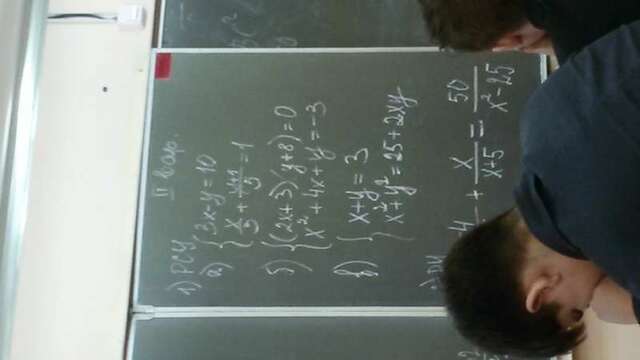 II вар.
1) РСУ
а) { 3x-y=10
x/3 + y+1/5 = 1
б) { (2x+3)(y+8)=0
x²+4x+y=-3
в) { x+y=3
x²+y²=25+2xy
) РУ
4 + x/x+5 = 50/x²-25